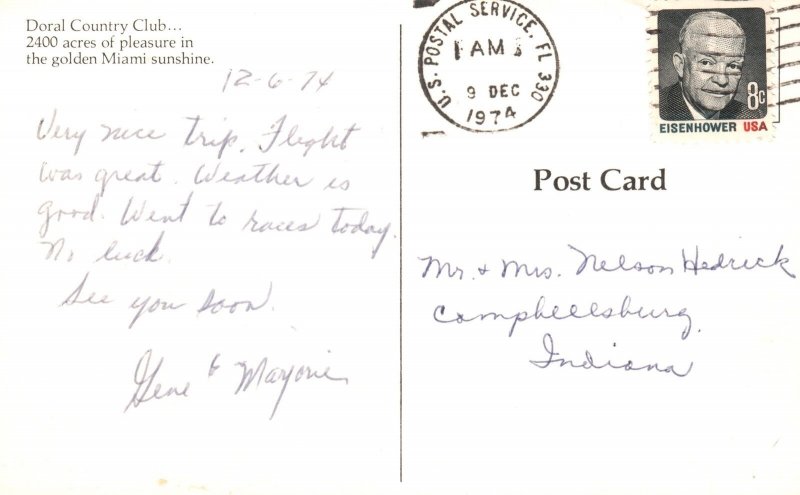 Doral Country Club...
2400 acres of pleasure in
the golden Miami sunshine.
12-6-74
Very nice trip. Flight
was great. Weather is
good. Went to races today.
No luck.
See you soon.
Gene & Marjorie
U.S. POSTAL SERVICE, FL 330
AM
9 DEC
1974
8c
EISENHOWER USA
Post Card
Mr. & Mrs. Nelson Hedrick
Campbellsburg,
Indiana